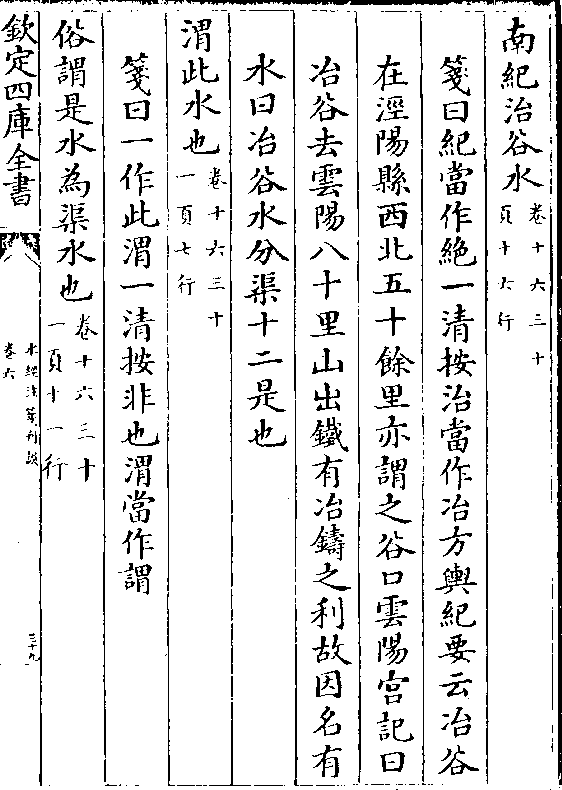 南紀治谷水卷十六三十
頁十六行
箋曰紀當作絶一清按治當作冶方輿紀要云冶谷
在涇陽縣西北五十餘里亦謂之谷口雲陽宫記曰
冶谷去雲陽八十里山出鐵有冶鑄之利故因名有
水曰冶谷水分渠十二是也
渭此水也卷十六三十
一頁七行
箋曰一作此渭一清按非也渭當作謂
俗謂是水為渠水也卷十六三十
一頁十一行
欽定四庫全書
水經注箋刊誤
卷六
三十九